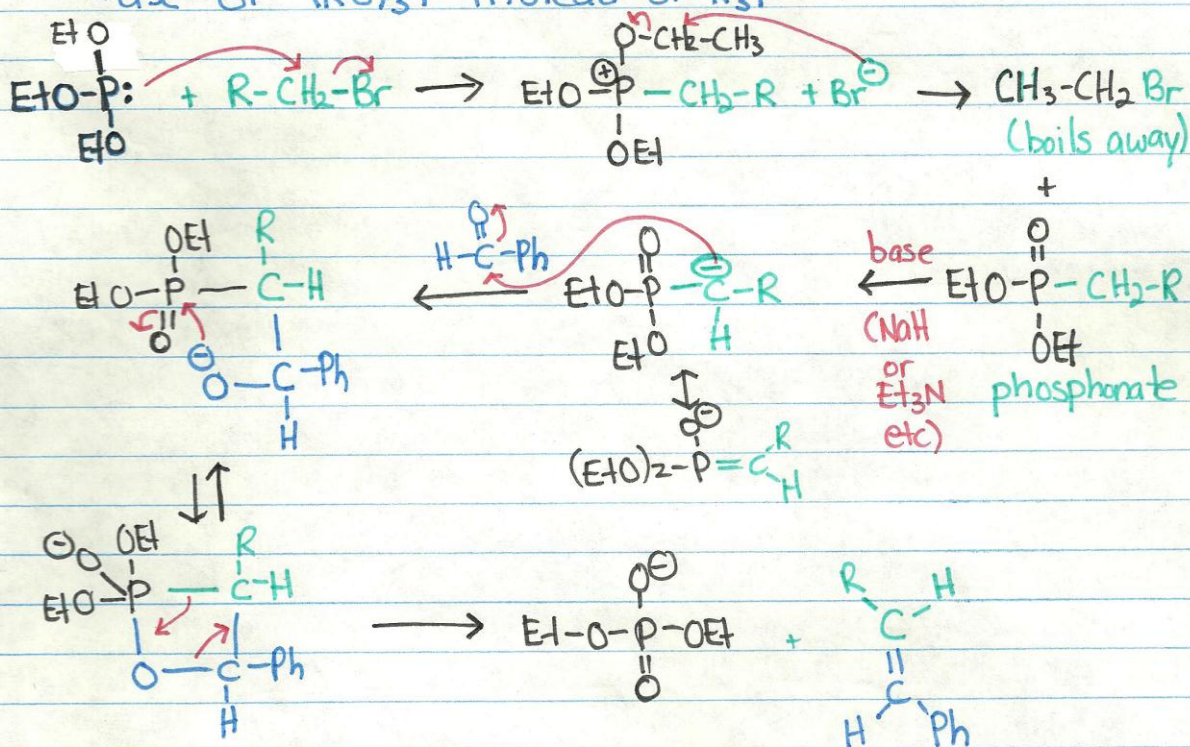 EtO
EtO-P: + R-CH2-Br → EtO-P⊕-CH2-R + Br⊖ → CH3-CH2Br
EtO
O-CH2-CH3
OEt
(boils away)
+
O
EtO-P-CH2-R
OEt
phosphonate
base
(NaH
or
Et3N
etc)
O
EtO-P-C⊖-R
EtO H
O⊖
(EtO)2-P=C
R
H
O
H-C-Ph
OEt R
EtO-P-C-H
O
⊖O-C-Ph
H
⊖O OEt R
EtO-P-C-H
O-C-Ph
H
→
O⊖
Et-O-P-OEt +
O
R H
C
C
H Ph